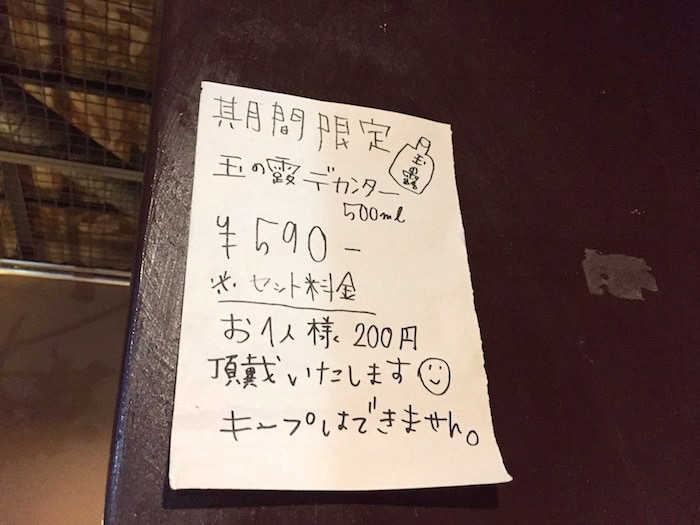 期間限定
玉の露デカンター
玉露
500ml
¥590-
※セット料金
お1人様 200円
頂戴いたします
キープはできません。